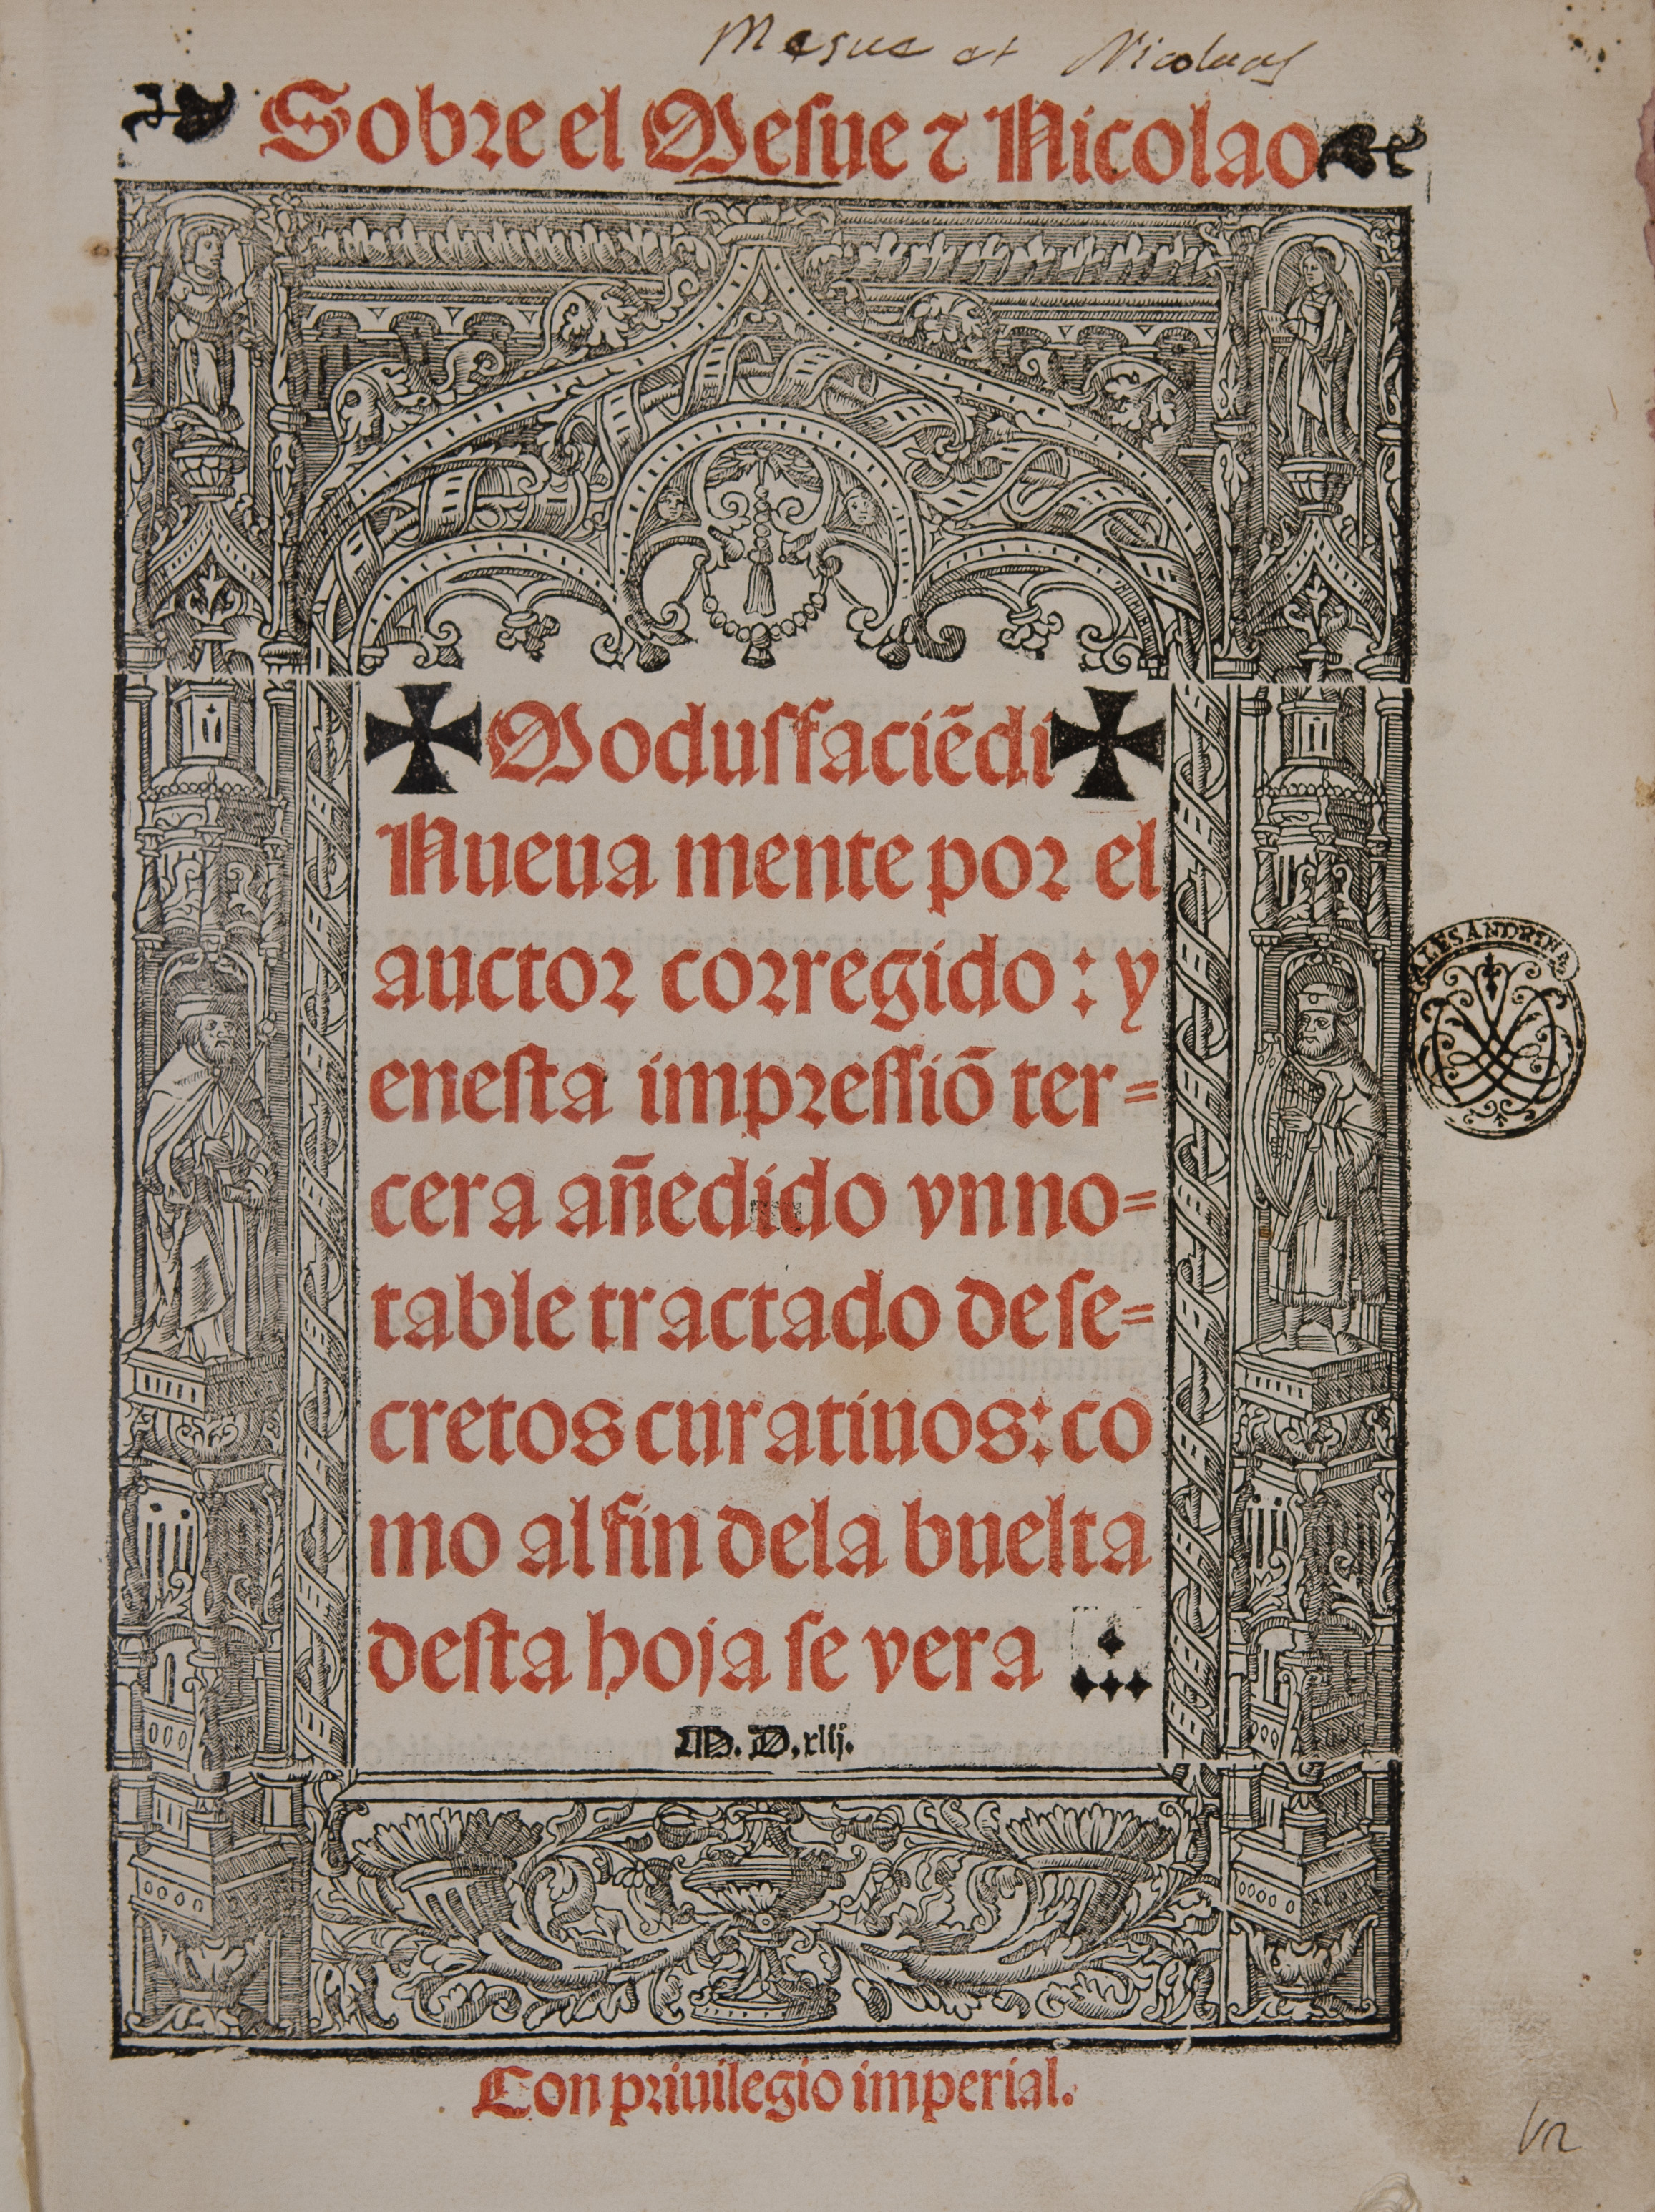 Mesue et Nicolaus
Sobre el Mesue ⁊ Nicolao
Modus faciēdi
Nueua mente por el
auctor corregido : y
enesta impressiō ter=
cera añedido vn no=
table tractado de se=
cretos curatiuos: co
mo al fin dela buelta
desta hoja se vera
M. D. xlij.
ALESANDRINA
Con priuilegio imperial.